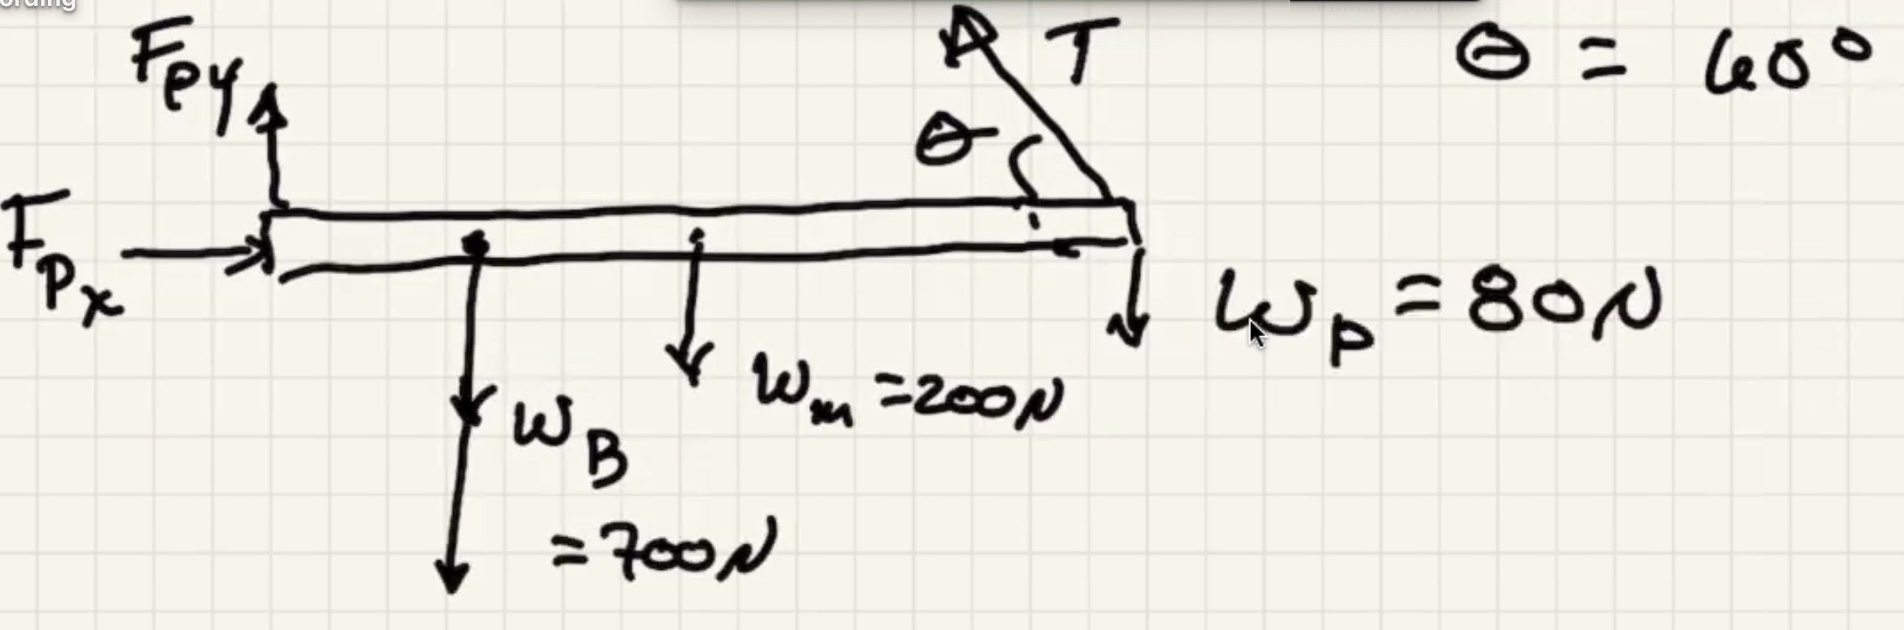 ording
F_Py
T
θ = 60°
θ
F_Px
W_P = 80N
W_m = 200N
W_B
= 700N